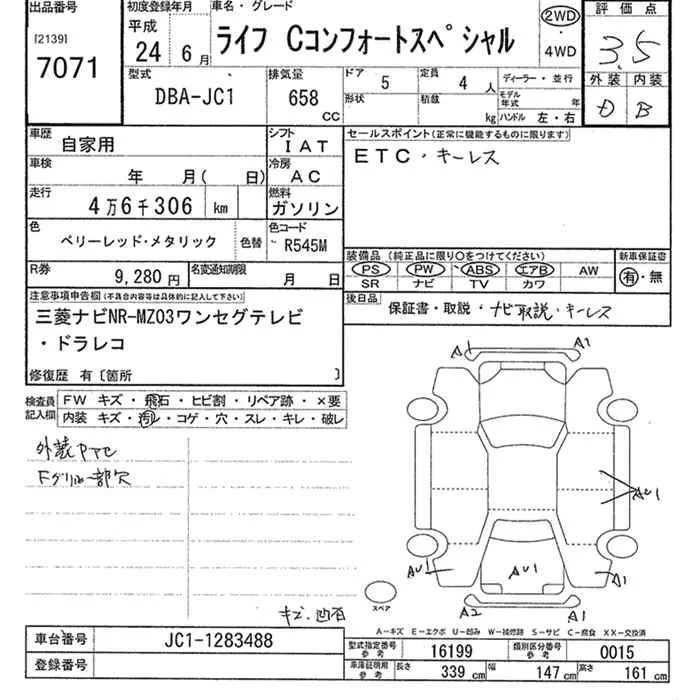 出品番号
[2139]
7071
初度登録年月
平成
24 6月
車名・グレード
ライフ Cコンフォートスペシャル
2WD
・
4WD
評価点
3.5
外装 内装
D B
型式
DBA-JC1
排気量
658 CC
ドア 5
定員 4 人
形状
積載 kg
ディーラー・並行
モデル年式 年
ハンドル 左・右
車歴 自家用
シフト IAT
車検 年 月( 日)
冷房 AC
走行 4万6千306 km
燃料 ガソリン
色 ベリーレッド・メタリック
色替
色コード R545M
R券 9,280円
名変通知期限 月 日
セールスポイント(正常に機能するものに限ります)
ETC・キーレス
装備品(純正品に限り○をつけてください)
PS PW ABS エアB AW
SR ナビ TV カワ
新車保証書
有・無
後日品 保証書・取説・ナビ取説・キーレス
注意事項申告欄(不具合内容等は具体的に記入して下さい)
三菱ナビNR-MZ03ワンセグテレビ
・ドラレコ
修復歴 有[箇所 ]
検査員記入欄
FW キズ・飛石・ヒビ割・リペア跡・×要
内装 キズ・汚レ・コゲ・穴・スレ・キレ・破レ
外装
Fグリル一部欠
キズ・凹有
A1 A1
AU1
AU1 AU1 A1
A2 A1
スペア
A-キズ E-エクボ U-凹み W-補修跡 S-サビ C-腐食 XX-交換済
車台番号 JC1-1283488
登録番号
型式指定番号参考 16199
類別区分番号参考 0015
車庫証明用参考 長さ 339 cm 幅 147 cm 高さ 161 cm